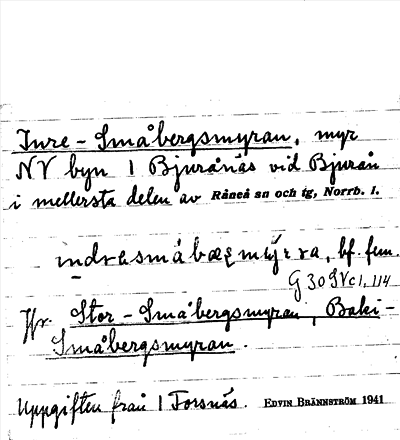 Inre - Småbergsmyran, myr
NV byn 1 Bjurånäs vid Bjurån
i mellersta delen av Råneå sn och tg, Norrb. l.
bf. fem.
G 30 SV c 1, 114
Jfr. Stor - Småbergsmyran, Baki -
Småbergsmyran.
Uppgiften från 1 Forsnäs. EDVIN BRÄNNSTRÖM 1941